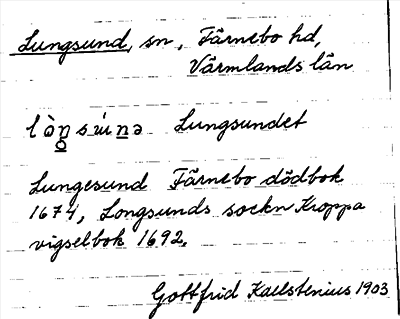 Lungsund, sn, Färnebo hd,
Värmlands län
Lungsundet
Lungesund Färnebo dödbok
1674, Longsunds sockn Kroppa
vigselbok 1692.
Gottfrid Kallstenius 1903